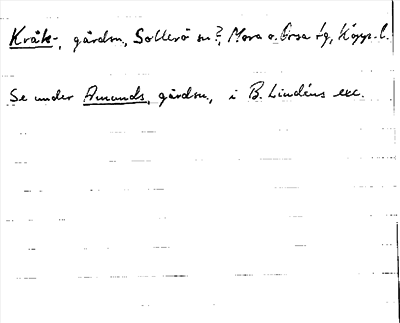 Kråk-, gårdsn, Sollerö sn?, Mora o. Orsa tg, Kopp. l.
Se under Amunds, gårdsn., i B. Lindéns exc.